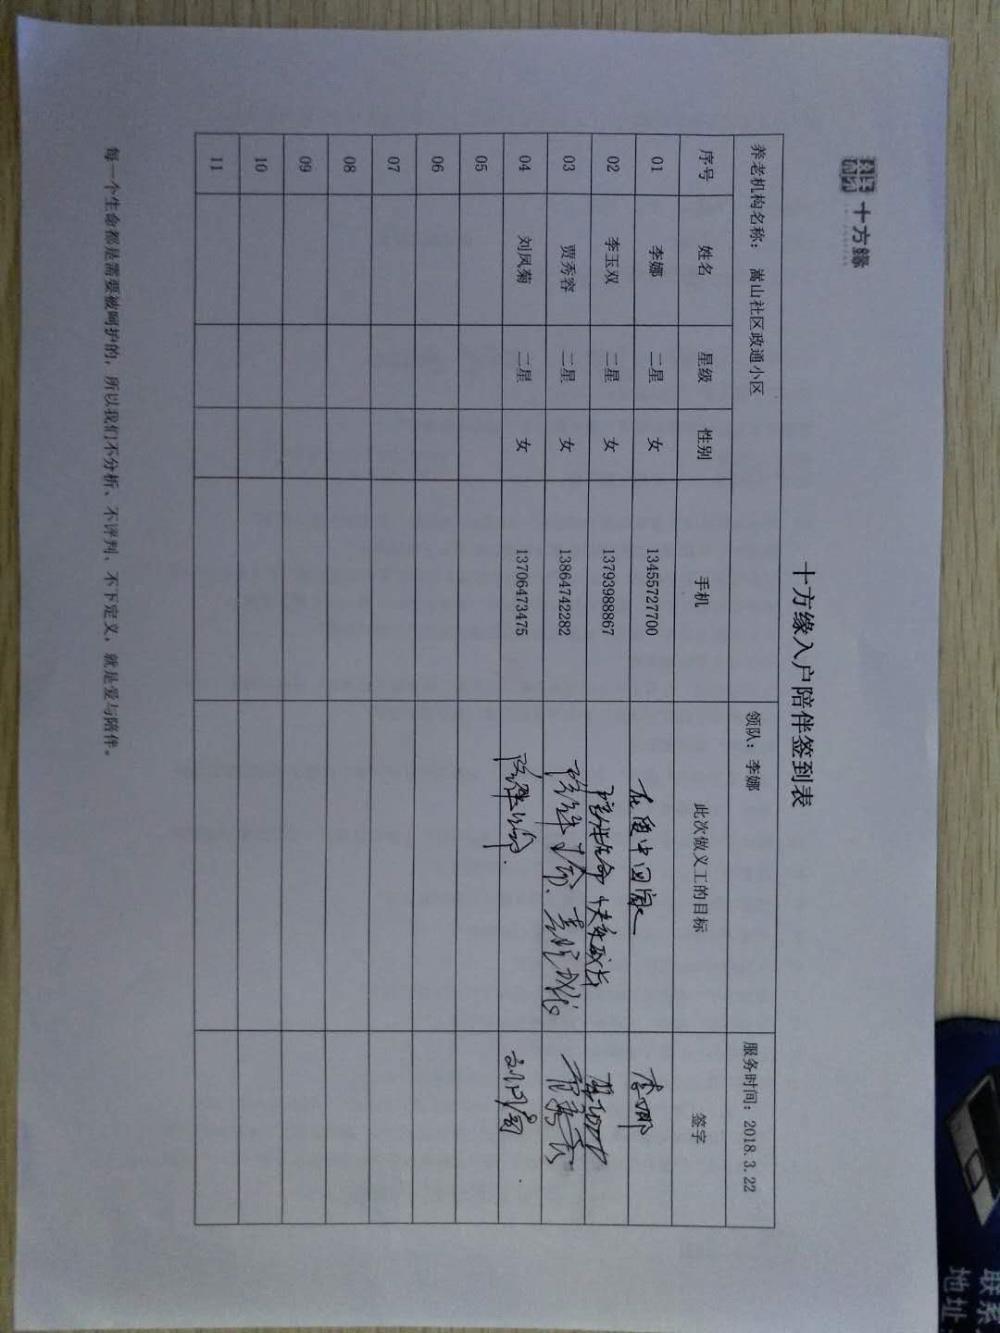 十方缘
十方缘入户陪伴签到表
养老机构名称： 嵩山社区政通小区 领队：李娜 服务时间：2018.3.22
序号 姓名 星级 性别 手机 此次做义工的目标 签字
01 李娜 二星 女 13455727700 在爱中回家 李娜
02 李玉双 二星 女 13793988867 陪伴生命 快乐成长 李玉双
03 贾秀容 二星 女 13864742282 陪伴生命、喜悦成长 贾秀容
04 刘凤菊 二星 女 13706473475 陪伴生命. 刘凤菊
05
06
07
08
09
10
11
每一个生命都是需要被呵护的，所以我们不分析、不评判、不下定义，就是爱与陪伴。
联系
地址